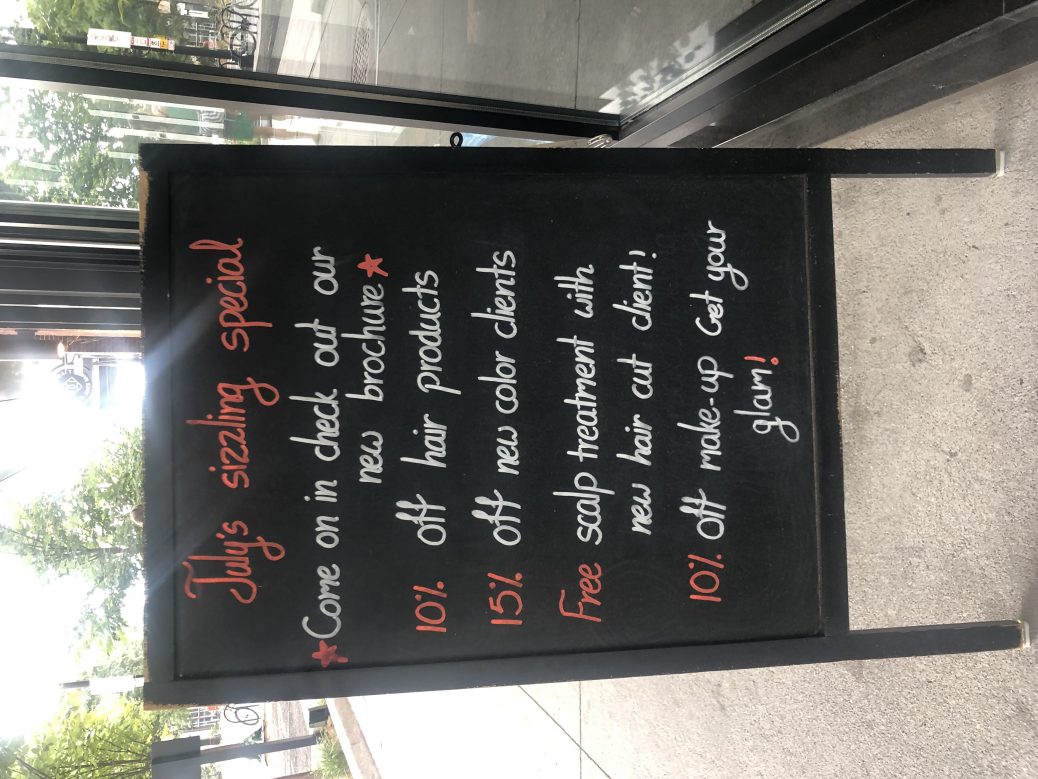 July's sizzling special
★Come on in check out our
new brochure★
10% off hair products
15% off new color clients
Free scalp treatment with
new hair cut client!
10% off make-up Get your
glam!